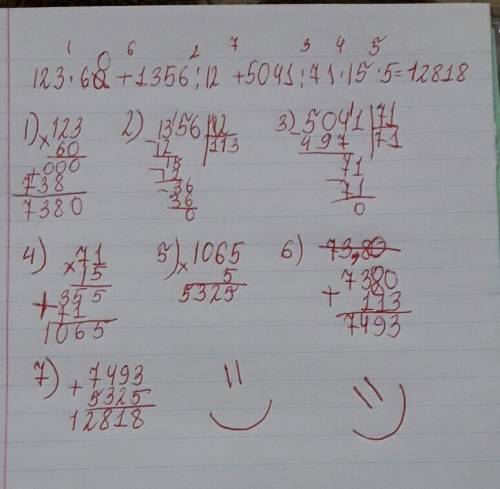 1 6 2 7 3 4 5
123·60+1356:12+5041:71·15·5=12818
1) ×123
60
+000
738
7380
2) 1356|12
-12 |113
15
-12
-36
36
0
3) -5041|71
497 |71
-71
71
0
4) ×71
15
+355
71
1065
5) ×1065
5
5325
6) 73,80
+7380
113
7493
7) +7493
5325
12818